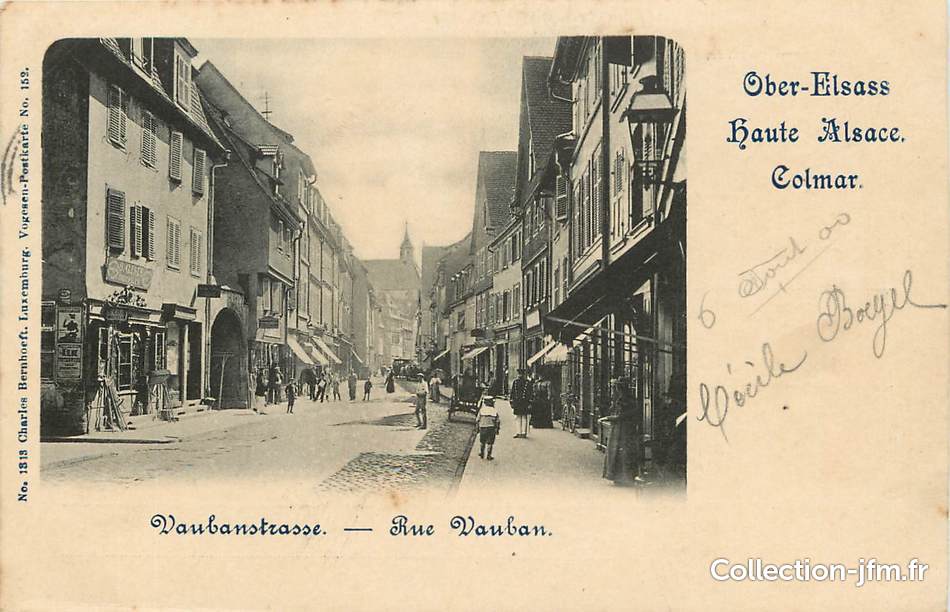 Ober-Elsass
Haute Alsace.
Colmar.
6 Août 00
Cécile
No. 1313 Charles Bernhoeft. Luxemburg. Vogesen-Postkarte No. 152.
Vaubanstrasse. — Rue Vauban.
Collection-jfm.fr